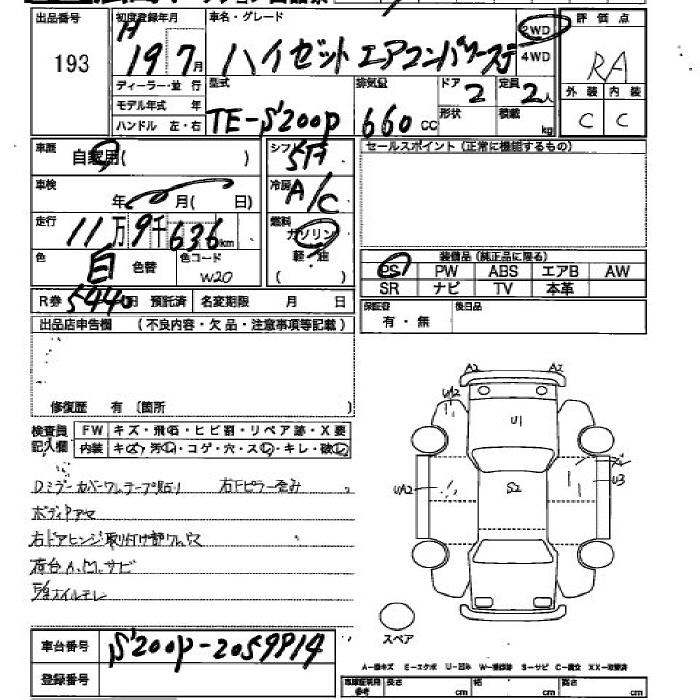 出品番号 193
初度登録年月 H 19 7月
車名・グレード ハイゼット エアコンパワステ
2WD
4WD
評価点 RA
外装 内装
C C
ディーラー・並行
モデル年式 年
ハンドル 左・右
型式 TE-S200P
排気量 660 CC
ドア 2
形状
定員 2人
積載 kg
車歴 自家用( )
シフト 5F
セールスポイント(正常に機能するもの)
車検 年 月( 日)
冷房 A/C
走行 11万9千636km
燃料 ガソリン
軽・油
( )
色 白 色替 色コード W20
装備品(純正品に限る)
PS PW ABS エアB AW
SR ナビ TV 本革
R券 5440円 預託済 名変期限 月 日
保証書 有・無
後日品
出品店申告欄 (不良内容・欠品・注意事項等記載)
修復歴 有 (箇所 )
検査員記入欄 FW キズ・飛石・ヒビ割・リペア跡・X要
内装 キズ・汚レ・コゲ・穴・スレ・キレ・破レ
Dミラーカバーワレテープ貼り 右Fピラー歪み
ボディPアセ
右ドアヒンジ取り付け部クルイ
荷台A.M.サビ
オイルモレ
A2 A2
UA2 U1
UA2 S2 U3
スペア
車台番号 S200P-2059914
登録番号
A-線キズ E-エクボ U-凹み W-補修跡 S-サビ C-腐食 XX-交換済
車検証実測参考 長さ cm 幅 cm 高さ cm